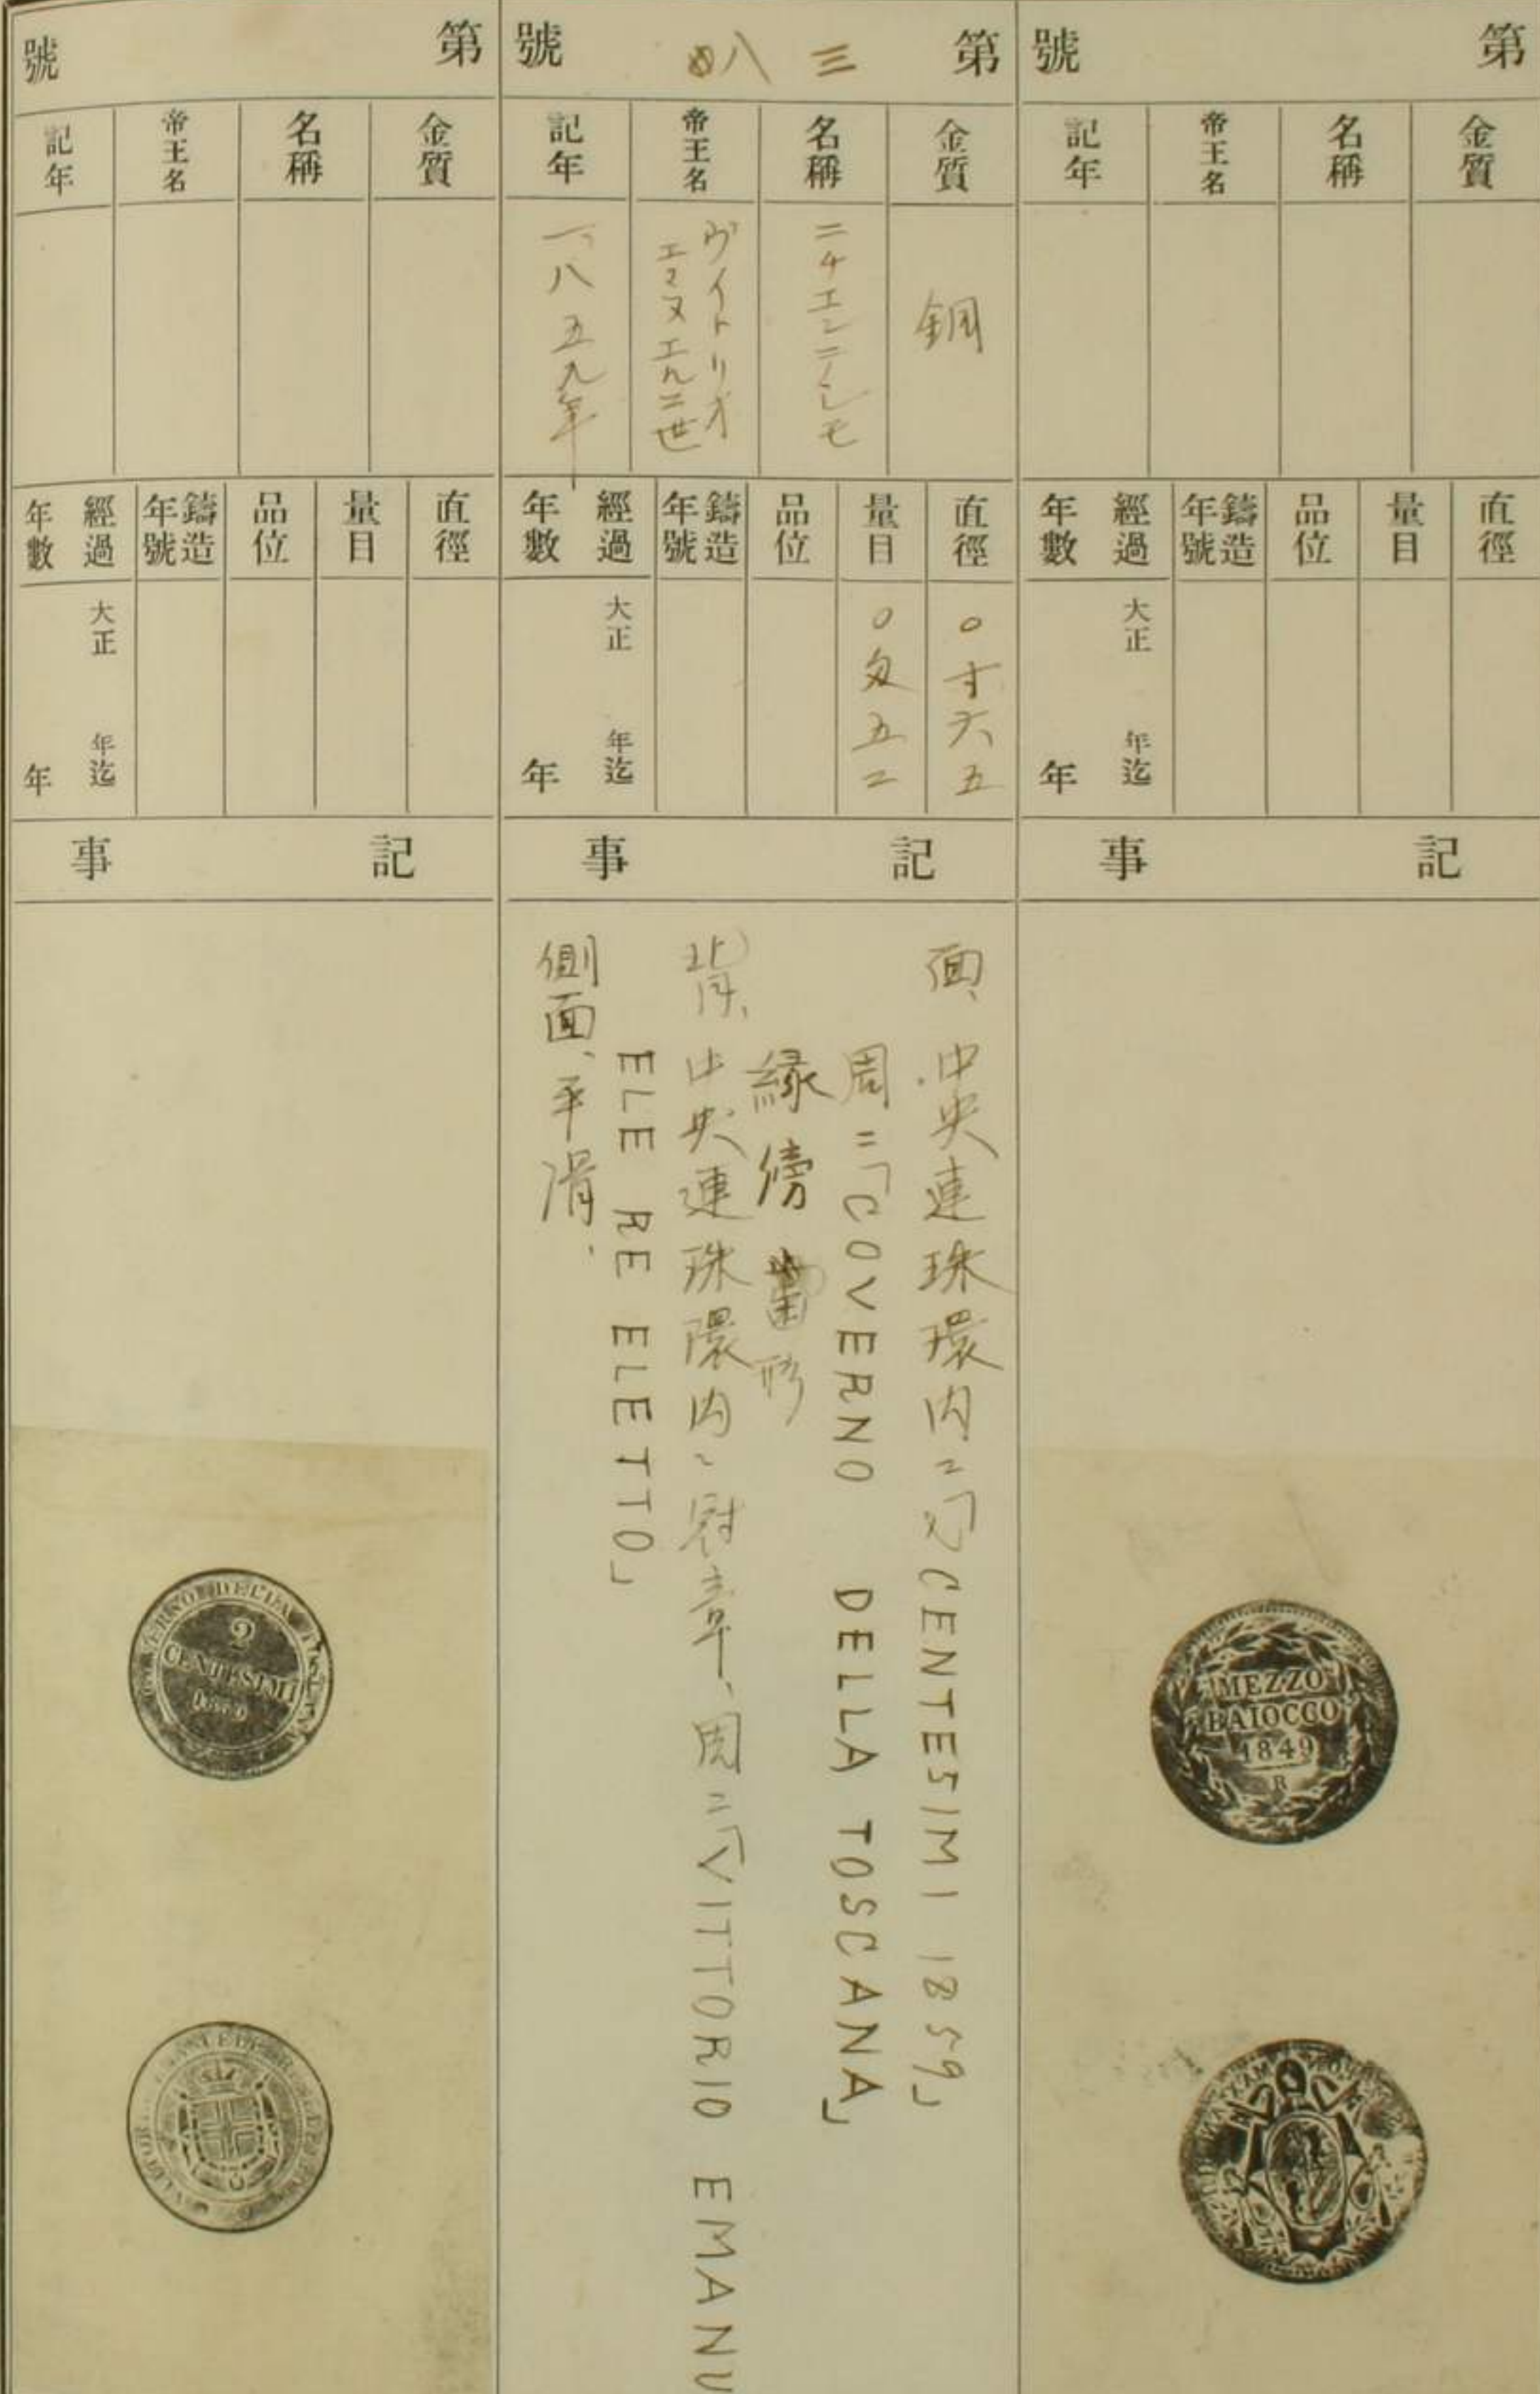 第 號
金質
名稱
帝王名
記年
直徑
量目
品位
鑄造年號
經過年數
大正 年迄
年
記事
MEZZO
BAIOCCO
1849
R
第 三八 號
金質
銅
名稱
帝王名
ヴィトリオ
エマヌエル二世
記年
一八五九年
直徑
〇寸六五
量目
〇匁五二
品位
鑄造年號
經過年數
大正 年迄
年
記事
面、中央連珠環内ニ「2 CENTESIMI 1859」
周ニ「COVERNO DELLA TOSCANA」
縁傍 歯形
背、中央連珠環内ニ 冠章、周ニ「VITTORIO EMANU
ELE RE ELETTO」
側面、平滑、
第 號
金質
名稱
帝王名
記年
直徑
量目
品位
鑄造年號
經過年數
大正 年迄
年
記事
VERNO DELLA
2
CENTESIMI